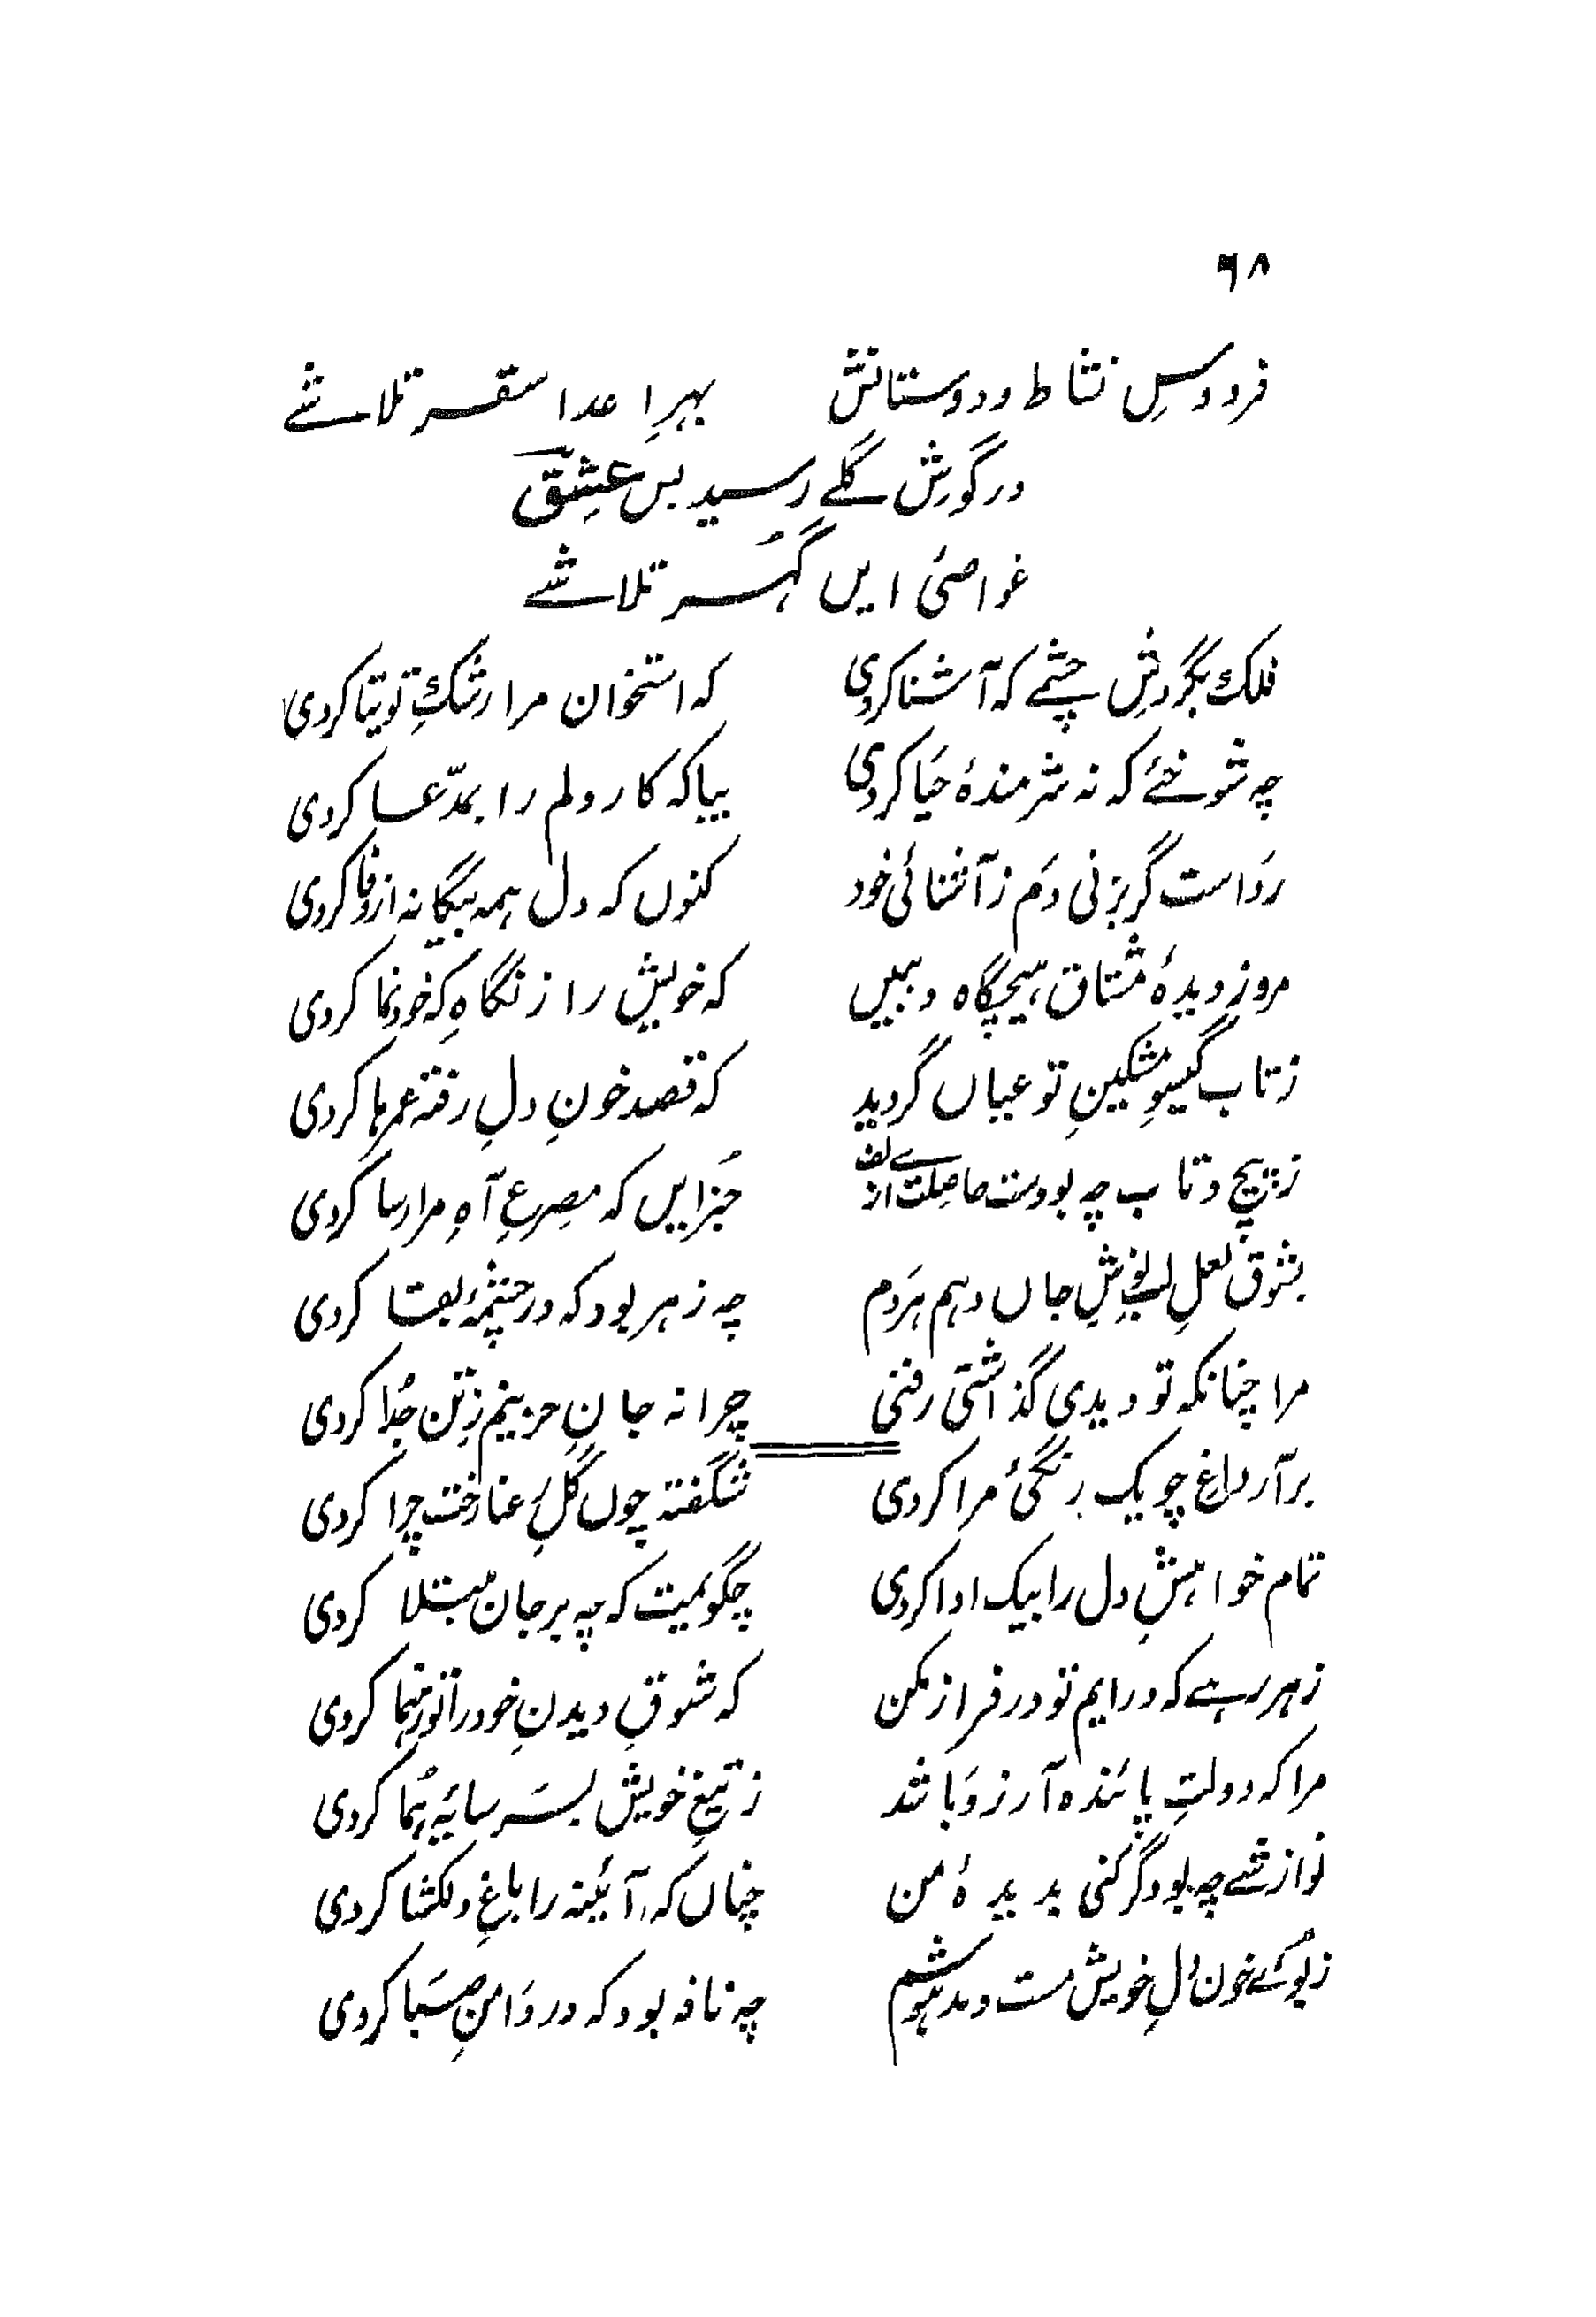 ۶۸
فردوسِ نشاط ودوستانش بہرِ اعدا سقر تلاشے
در گورِش گلے رسید بس عِشق
غواصئ ایں گُہر تلاشے
فلک بگردشِ چشمے کہ آشنا کردی کہ استخوان مرا رشکِ توتیا کردی
چہ شوخئے کہ نہ شرمندۂ حَیا کردی بیا کہ کار دلم را بمدّعا کردی
رَواست گر بزنی دَم ز آشنائی خود کنوں کہ دل ہمہ بیگانہ از وفا کردی
مروز دیدۂ مشتاق ہیچگاہ و ببیں کہ خویش را ز نگاہِ کہ خود نما کردی
زتاب گیسوِ مشکینِ تو عیاں گردید کہ قصد خونِ دلِ رفتہ عمرہا کردی
ز پیچ و تاب چہ بودست حاصِلت اے زلف جُز ایں کہ مِصرعِ آہِ مرا رسا کردی
بشوق لعلِ لبِ خویشِ جاں دہم ہَردم چہ زہر بود کہ در چشمۂ بقا کردی
مرا چنانکہ تو دیدی گذاشتی رفتی چرا نہ جانِ حزینم زتن جُدا کردی
برآر داغ چو یک رنگئ مرا کردی شگفتہ چوں گلِ رُعنا رخت چرا کردی
تمام خواہشِ دل را بیک ادا کردی چگویمیت کہ چہ بر جان مبتلا کردی
زہر رہے کہ درایم تو در فراز مکن کہ شوقِ دیدنِ خود را تو رہنما کردی
مرا کہ دولتِ پائندہ آرزو بَاشد ز تیغِ خویش بسَر سایۂ ہُما کردی
نوازشے چہ بود گر کنی بدیدۂ من چناں کہ آئینہ را باغِ دلکشا کردی
ز بُوئے خون دلِ خویش مست و مدہوشم چہ نافہ بود کہ در دَامنِ صَبا کردی